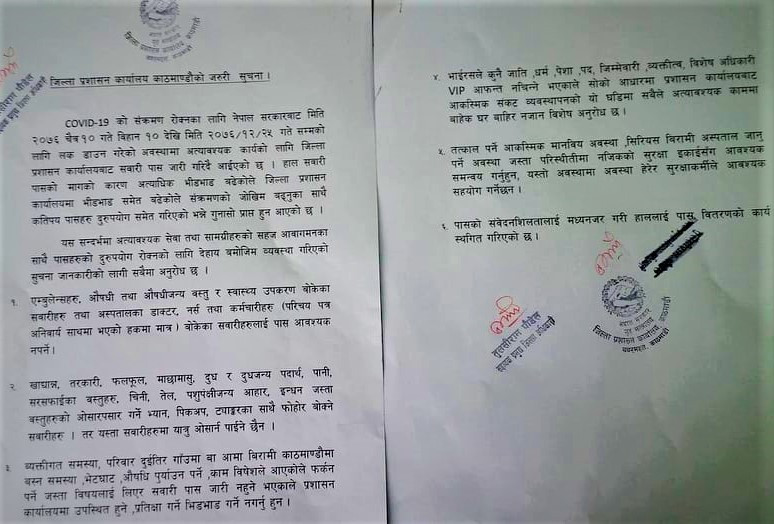 जिल्ला प्रशासन कार्यालय काठमाण्डौको जरुरी सूचना ।
COVID-19 को संक्रमण रोक्नका लागि नेपाल सरकारबाट मिति
२०७६ चैत्र १० गते बिहान १० देखि मिति २०७६/१२/२५ गते सम्मको
लागि लक डाउन गरेको अवस्थामा अत्यावश्यक कार्यको लागि जिल्ला
प्रशासन कार्यालयबाट सवारी पास जारी गरिदै आईएको छ । हाल सवारी
पासको मागको कारण अत्याधिक भीडभाड बढेकोले जिल्ला प्रशासन
कार्यालयमा भीडभाड समेत बढेकोले संक्रमणको जोखिम बढ्नुका साथै
कतिपय पासहरु दुरुपयोग समेत गरिएको भन्ने गुनासो प्राप्त हुन आएको छ ।
यस सन्दर्भमा अत्यावश्यक सेवा तथा सामग्रीहरुको सहज आवागमनका
साथै पासहरुको दुरुपयोग रोक्नको लागि देहाय बमोजिम व्यवस्था गरिएको
सुचना जानकारीको लागी सबैमा अनुरोध छ ।
१. एम्बुलेन्सहरु, औषधी तथा औषधीजन्य वस्तु र स्वास्थ्य उपकरण बोकेका
सवारीहरु तथा अस्पतालका डाक्टर, नर्स तथा कर्मचारीहरु (परिचय पत्र
अनिवार्य साथमा भएको हकमा मात्र) बोकेका सवारीहरुलाई पास आवश्यक
नपर्ने।
२. खाद्यान्न, तरकारी, फलफूल, माछामासु, दुध र दुधजन्य पदार्थ, पानी,
सरसफाईका वस्तुहरु, चिनी, तेल, पशुपंक्षीजन्य आहार, इन्धन जस्ता
वस्तुहरुको ओसारपसार गर्ने भ्यान, पिकअप, ट्याङ्करका साथै फोहोर बोक्ने
सवारीहरु । तर यस्ता सवारीहरुमा यात्रु ओसार्न पाईने छैन ।
३. व्यक्तीगत समस्या, परिवार दुईतिर गाँउमा बा आमा बिरामी काठमाण्डौमा
बस्न समस्या ,भेटघाट ,औषधि पुर्याउन पर्ने ,काम विषेशले आएकोले फर्कन
पर्ने जस्ता विषयलाई लिएर सवारी पास जारी नहुने भएकाले प्रशासन
कार्यालयमा उपस्थित हुने ,प्रतिक्षा गर्ने भिडभाड गर्ने नगर्नु हुन ।
४. भाईरसले कुनै जाति ,धर्म ,पेशा ,पद, जिम्मेवारी ,व्यक्तीत्व, विशेष अधिकारी
VIP आफन्त नचिन्ने भएकाले सोको आधारमा प्रशासन कार्यालयबाट
आकस्मिक संकट व्यवस्थापनको यो घडिमा सबैले अत्यावश्यक काममा
बाहेक घर बाहिर नजान विशेष अनुरोध छ ।
५. तत्काल पर्ने आकस्मिक मानविय अवस्था ,सिरियस बिरामी अस्पताल जानु
पर्ने अवस्था जस्ता परिस्थीतीमा नजिकको सुरक्षा इकाईसंग आवश्यक
समन्वय गर्नुहुन, यस्तो अवस्थामा अवस्था हेरेर सुरक्षाकर्मीले आवश्यक
सहयोग गर्नेछन ।
६. पासको संवेदनशिलतालाई मध्यनजर गरी हाललाई पास वितरणको कार्य
स्थगित गरिएको छ ।
तुलसीराम पौडेल
सहायक प्रमुख जिल्ला अधिकारी
नेपाल सरकार
गृह मन्त्रालय
जिल्ला प्रशासन कार्यालय, काठमाडौं